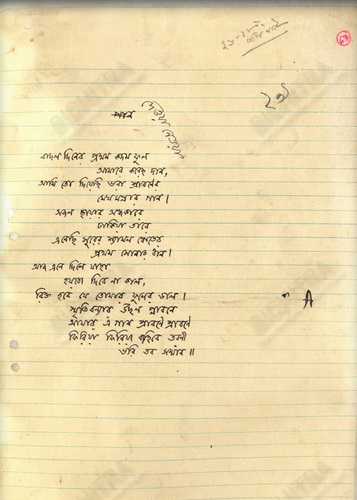 ২৯
দেওয়া নেওয়া
গান
বাদল দিনের প্রথম কদম ফুল
আমায় করেছ দান,
আমি তো দিয়েছি ভরা শ্রাবণের
মেঘমল্লার গান।
সজল ছায়ার অন্ধকারে
ঢাকিয়া তারে
এনেছি সুরের শ্যামল খেতের
প্রথম সোনার ধান।
আজ এনে দিলে যাহা
হয়তো দিবে না কাল,
রিক্ত হবে যে তোমার ফুলের ডাল।
স্মৃতিবন্যার উছল প্লাবনে
আমার এ গান শ্রাবণে শ্রাবণে
ফিরিয়া ফিরিয়া বাহিবে তরণী
ভরি তব সম্মান॥
A